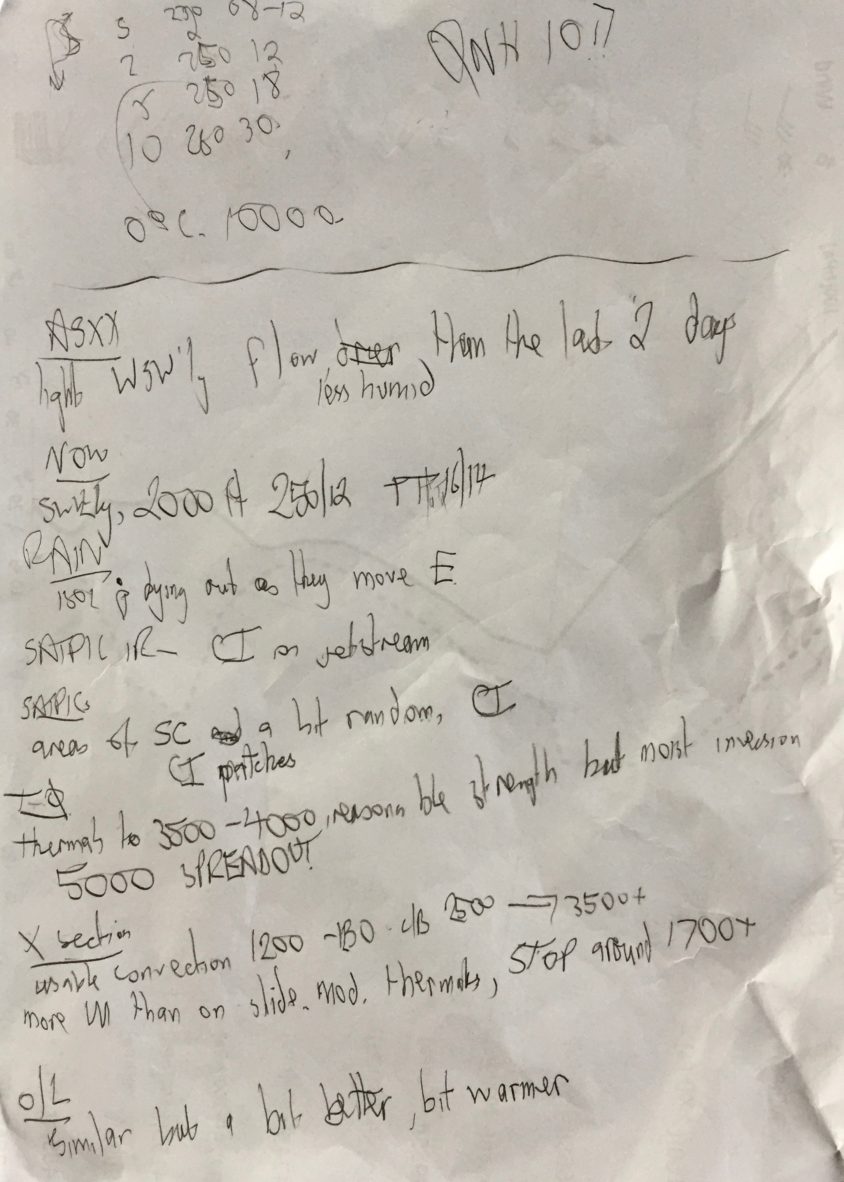 S 250 08-12
2 250 12
5 250 18
10 260 30
QNH 1017
0°C. 10000
ASXX
light WSW'ly flow, than the last 2 days
less humid
NOW
SW'ly, 2000 ft 250/12 TT 16/14
RAIN
dying out as they move E
SATPIC IR - CI on jetstream
SATPIC
areas of SC a bit random, CI
CI patches
T-Φ
thermals to 3500-4000, reasonable strength but moist inversion
5000 SPREADOUT
X section
usable convection 1200 - c/B 2500 ⇒ 3500+
more than on slide. mod. thermals, STOP around 1700+
O/L
Similar but a bit better, bit warmer